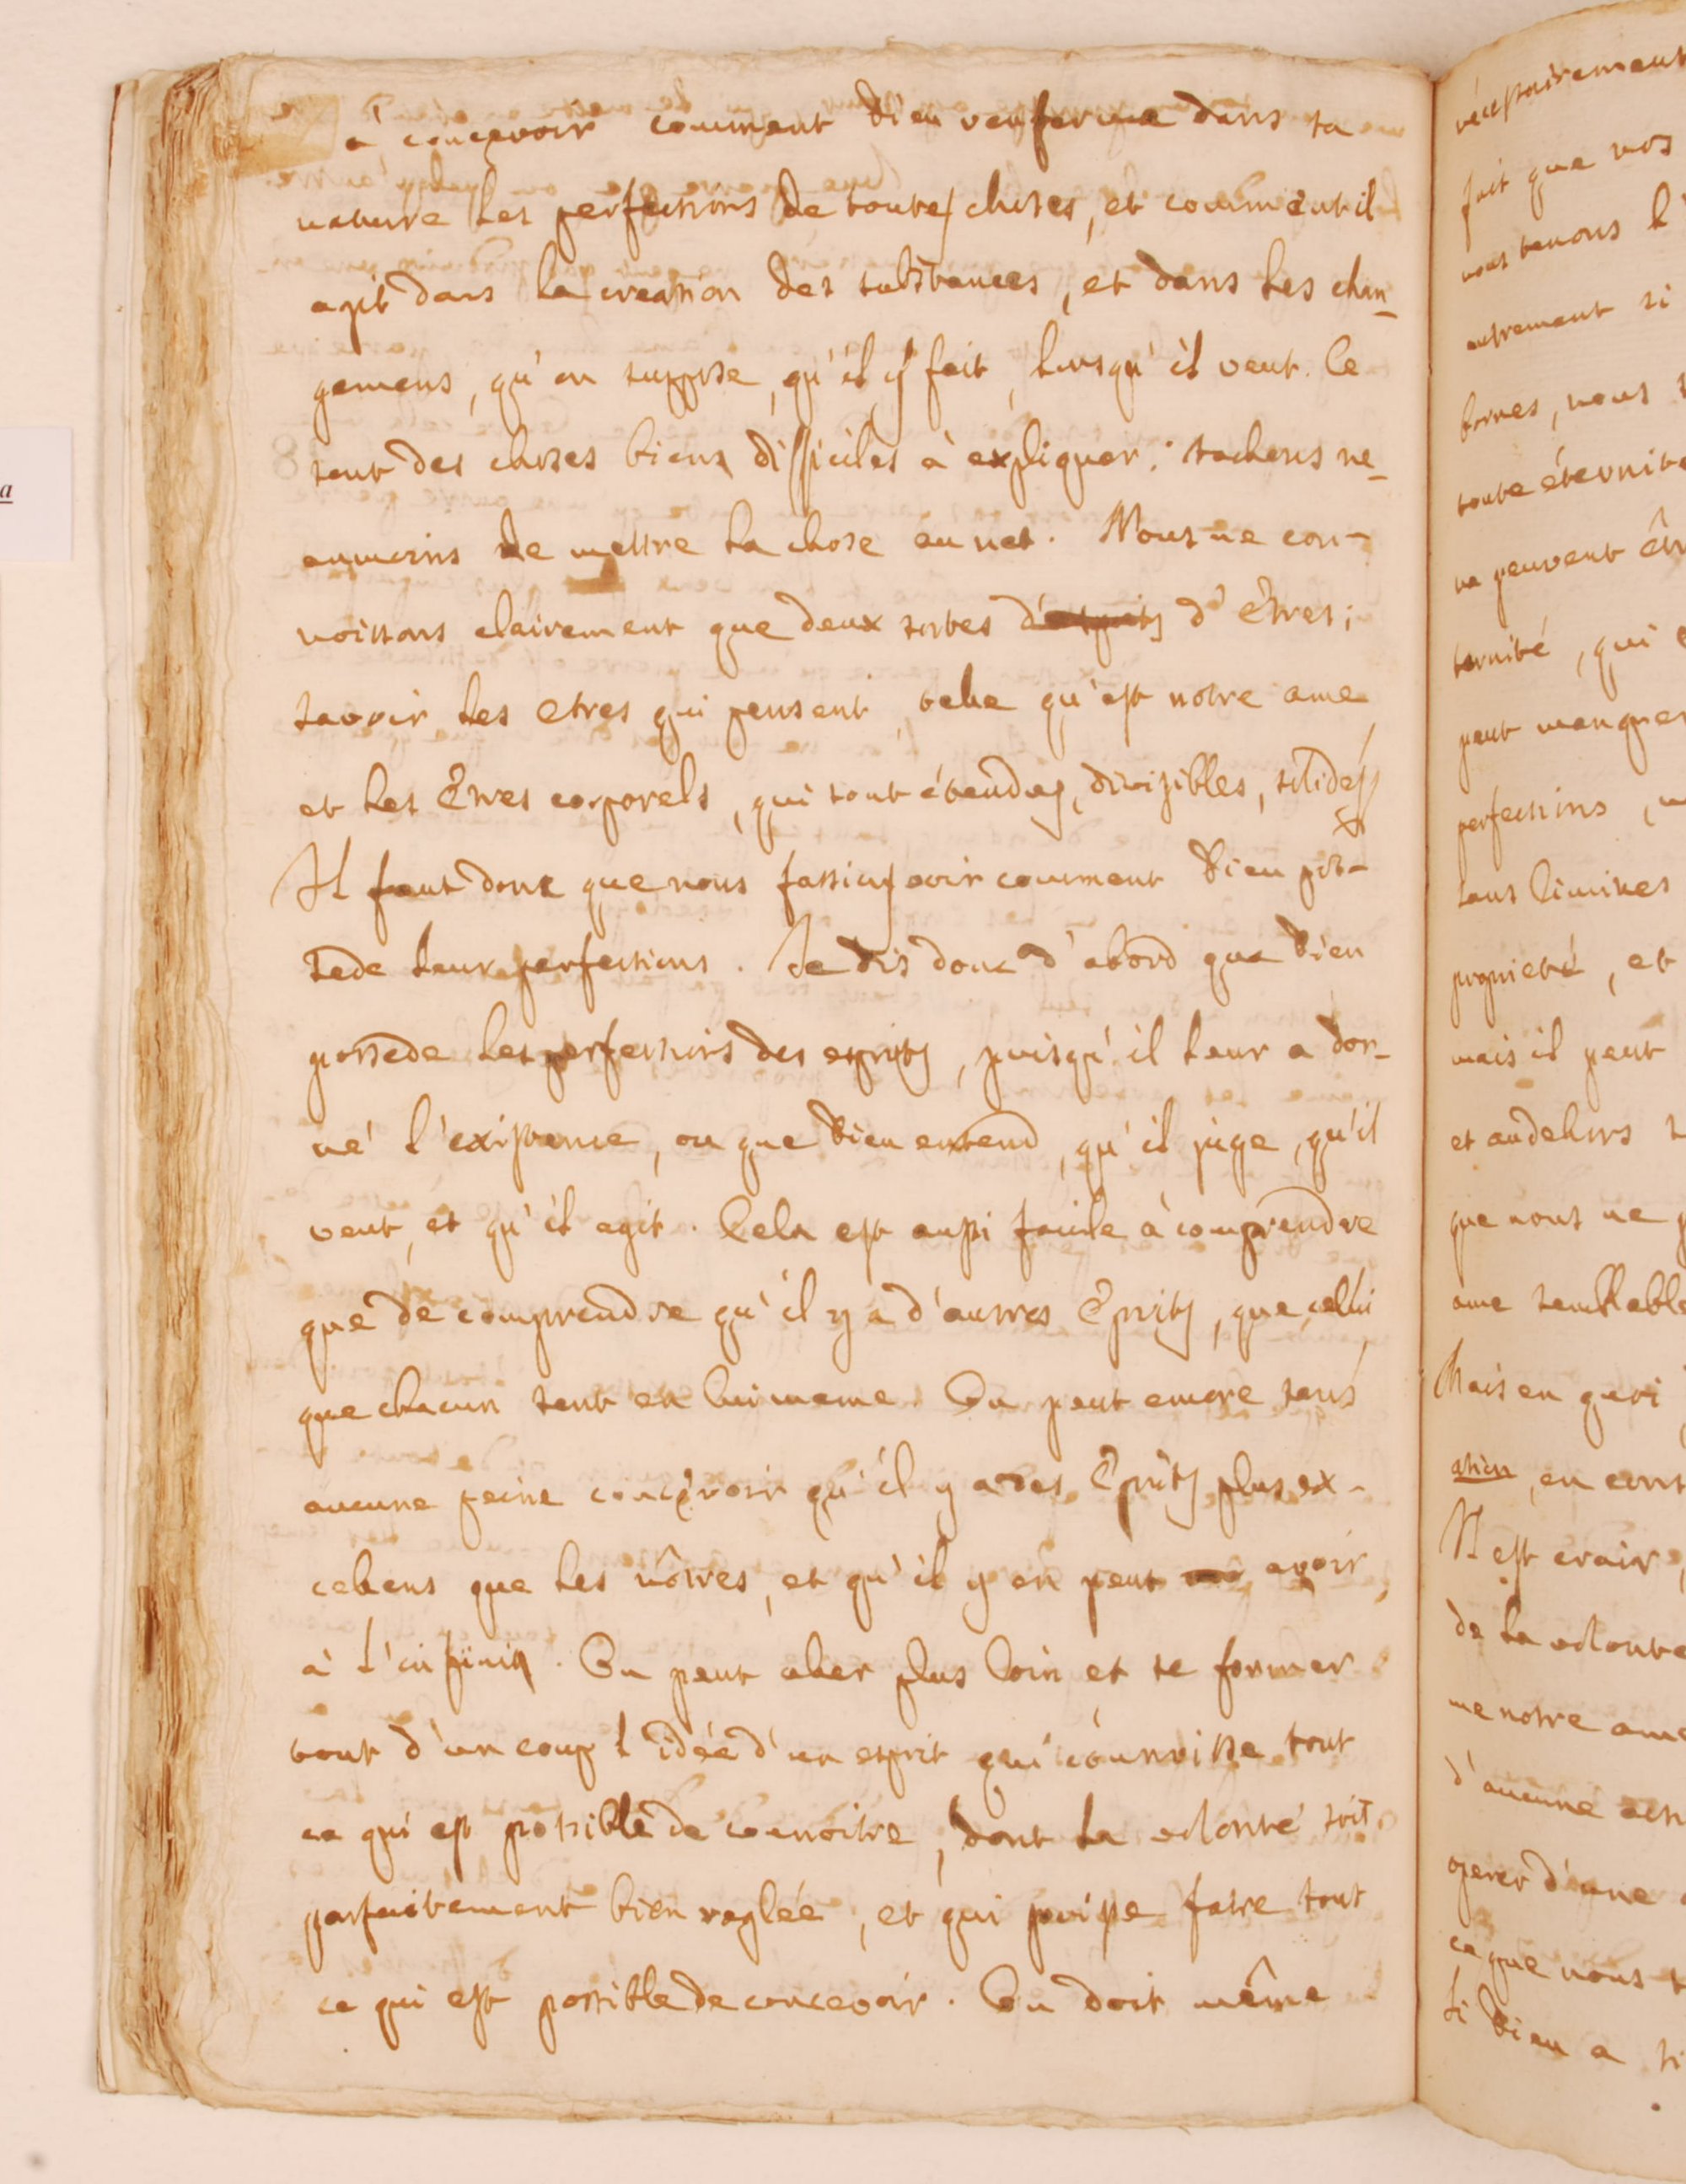 à concevoir comment Dieu renferme dans sa
nature les perfections de toutes choses, et comment il
agit dans la creation des substances, et dans les chan-
gemens, qu'on suppose, qu'il y fait, lorsqu'il veut. Ce
sont des choses biens difficiles à expliquer; tachons ne-
anmoins de mettre la chose au net. Nous ne con-
noissons clairement que deux sortes d'esprits d'Etres;
savoir les etres qui pensent, telle qu'est notre ame,
et les Etres corporels, qui sont étendus, divisibles, solides
Il faut donc que nous fassions voir comment Dieu pos-
sede leurs perfections. Je dis donc d'abord que Dieu
possede les perfections des esprits, puisqu'il leur a don-
né l'existence, ou que Dieu entend, qu'il juge, qu'il
veut, et qu'il agit. Cela est aussi facile à comprendre
que de comprendre qu'il y a d'autres Esprits, que celui
que chacun sent en lui meme. On peut encore sans
aucune peine concevoir qu'il y a des Esprits plus ex-
celens que les nôtres, et qu'il y en peut avoir,
à l'infini. On peut aller plus loin et se former
tout d'un coup l'idée d'un esprit qui connoisse tout
ce qui est possible de connoitre, dont la volonté soit
parfaitement bien reglée, et qui puisse faire tout
ce qui est possible de concevoir. On doit même
necessairement
fait que nos
nous tenons l'
autrement si
bornes, nous
toute éternité
ne peuvent êtr
ternité, qui
peut manquer
perfections,
sans limites
proprieté, et
mais il peut
et audehors
que nous ne
ame semblable
Mais en quoi
ation, en cons
Il est crair,
de la volonté
me notre ame
d'aucune act
operer d'une
ce que nous
si Dieu a